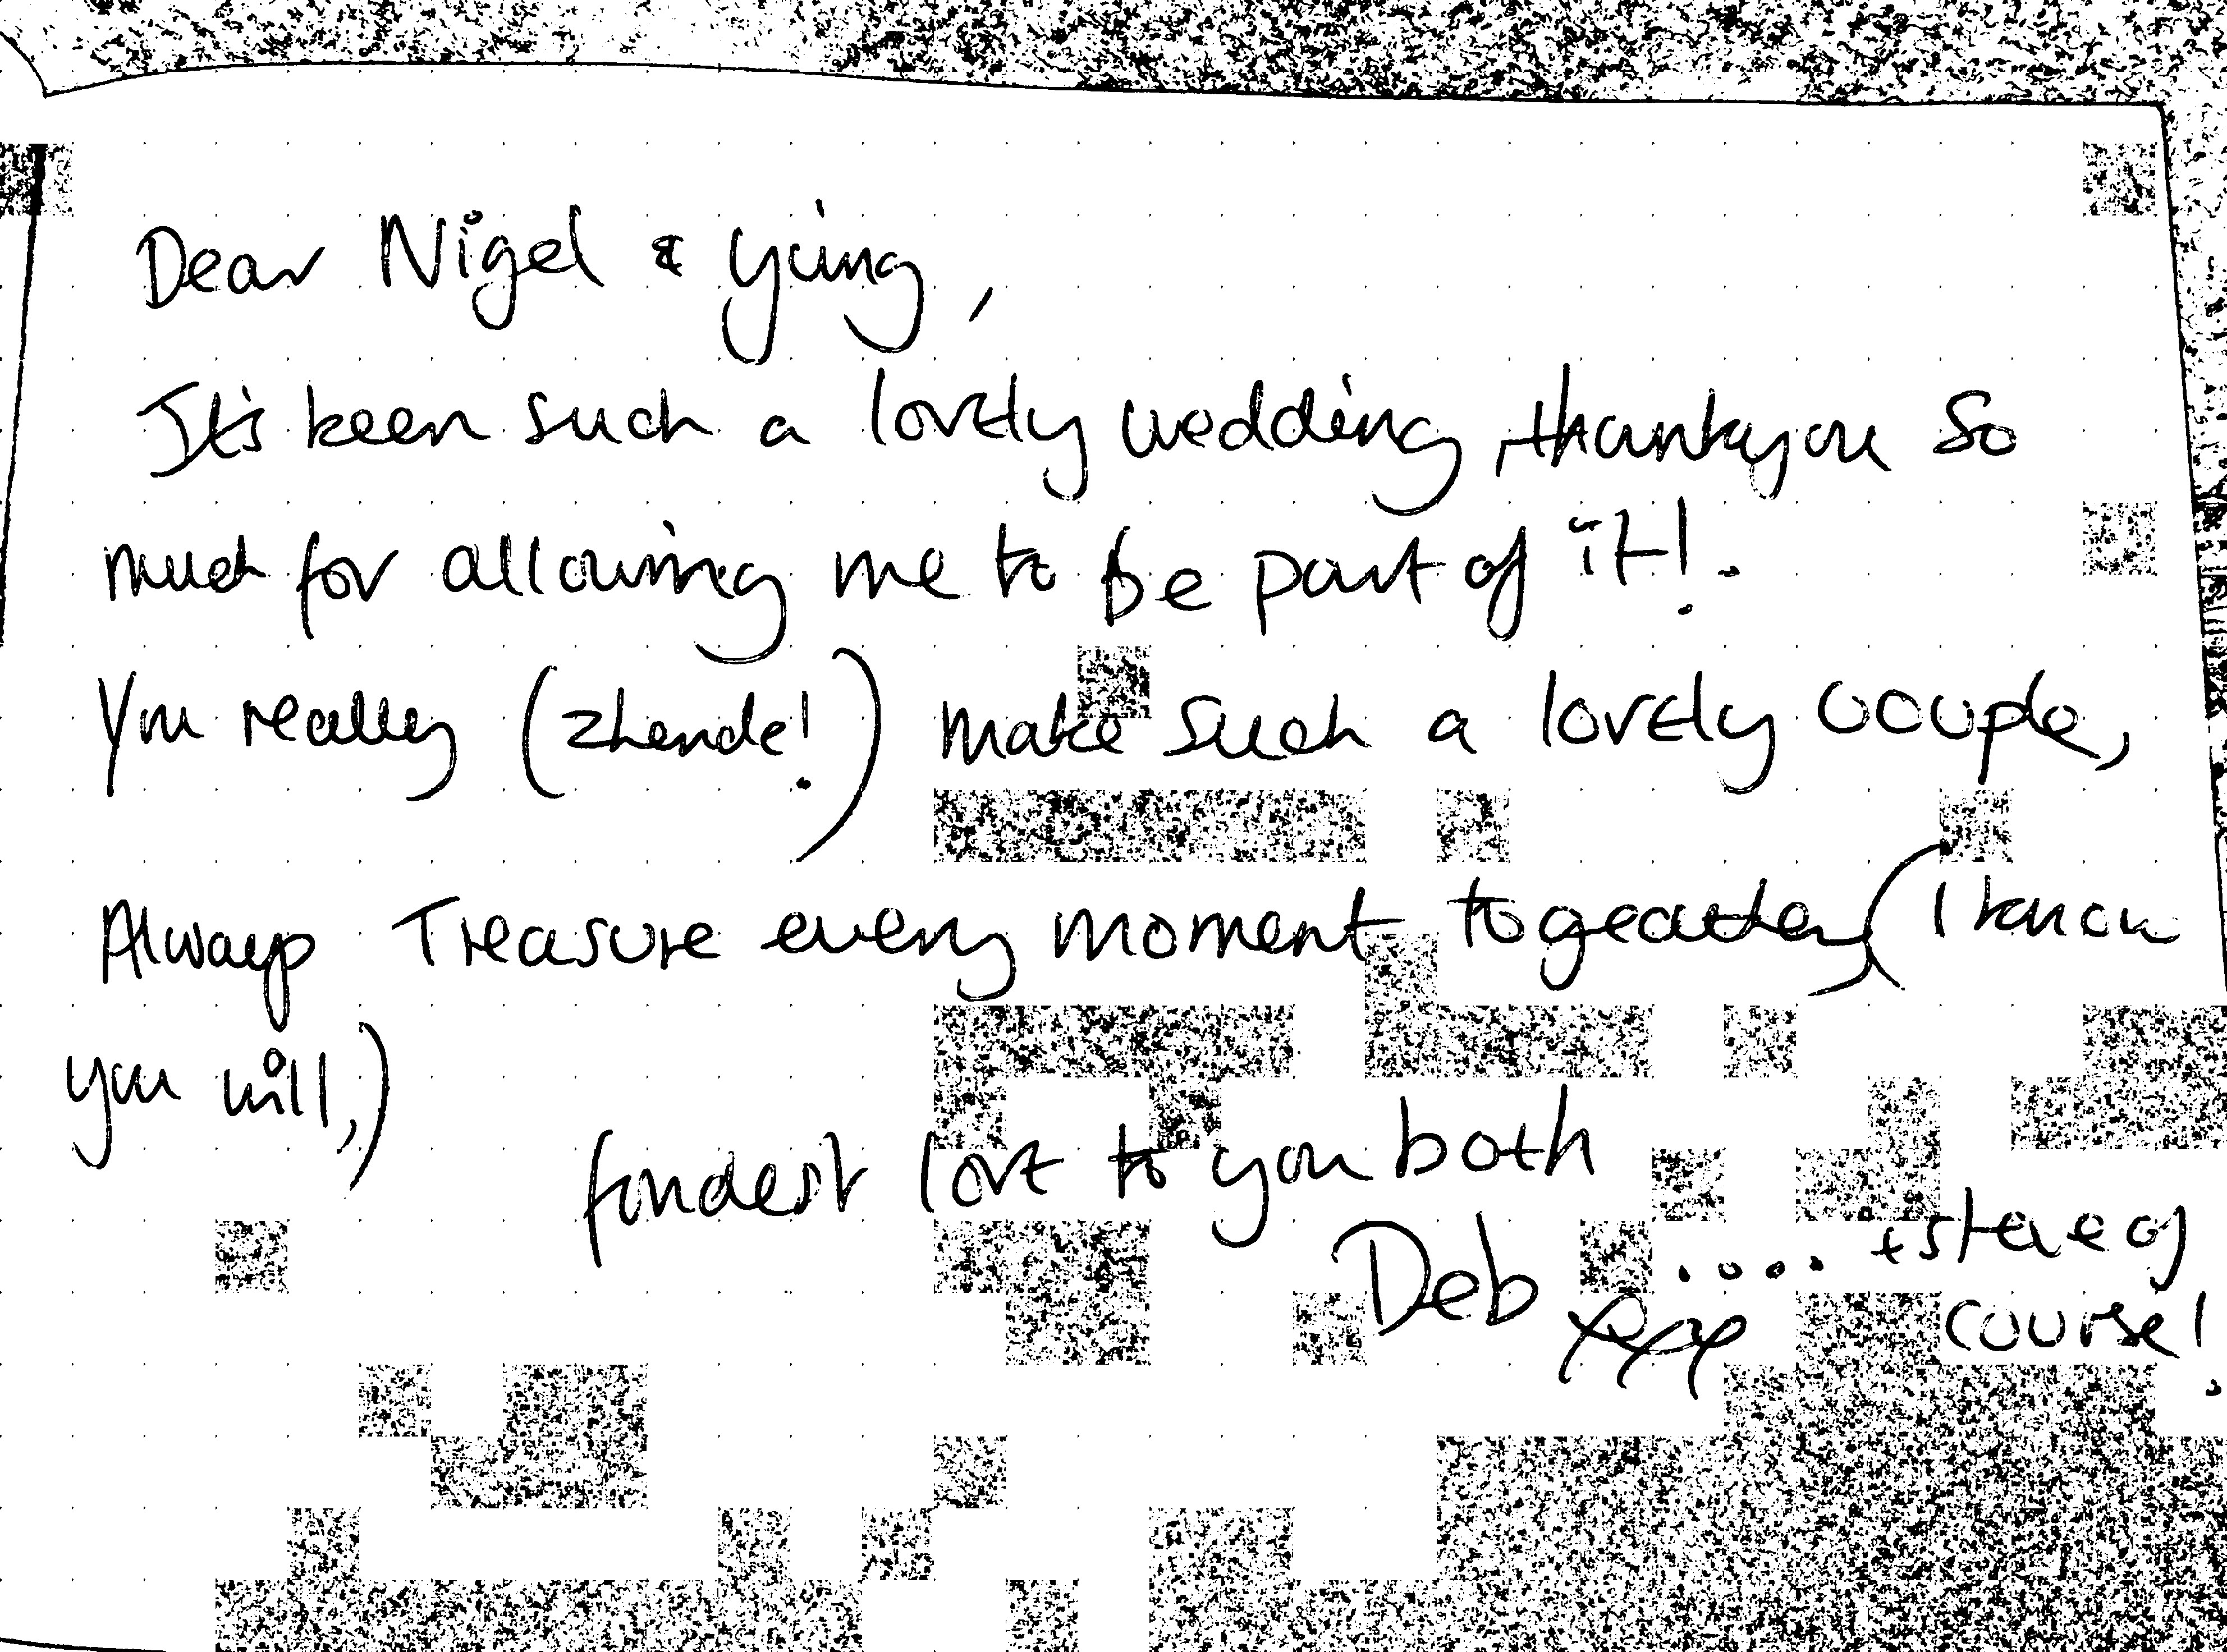 Dear Nigel & Ying,
It's been such a lovely wedding, thankyou so
much for allowing me to be part of it!.
You really (zhende!) make such a lovely couple,
Always Treasure every moment togeather (I know
you will,)
fondest love to you both
Deb xxx .... + steve of
course!